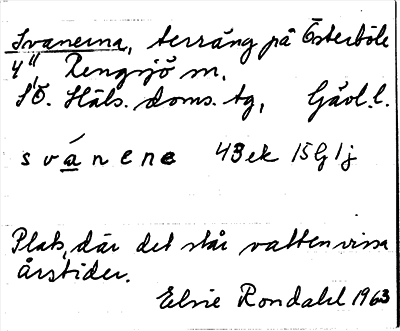 Svanerna, terräng på Österböle
4" Rengsjö sn.
SÖ. Häls. doms. tg, Gävl. l.
svánene 43 ek 15G1j
Plats, där det står vatten vissa
årstider.
Elsie Rondahl 1963